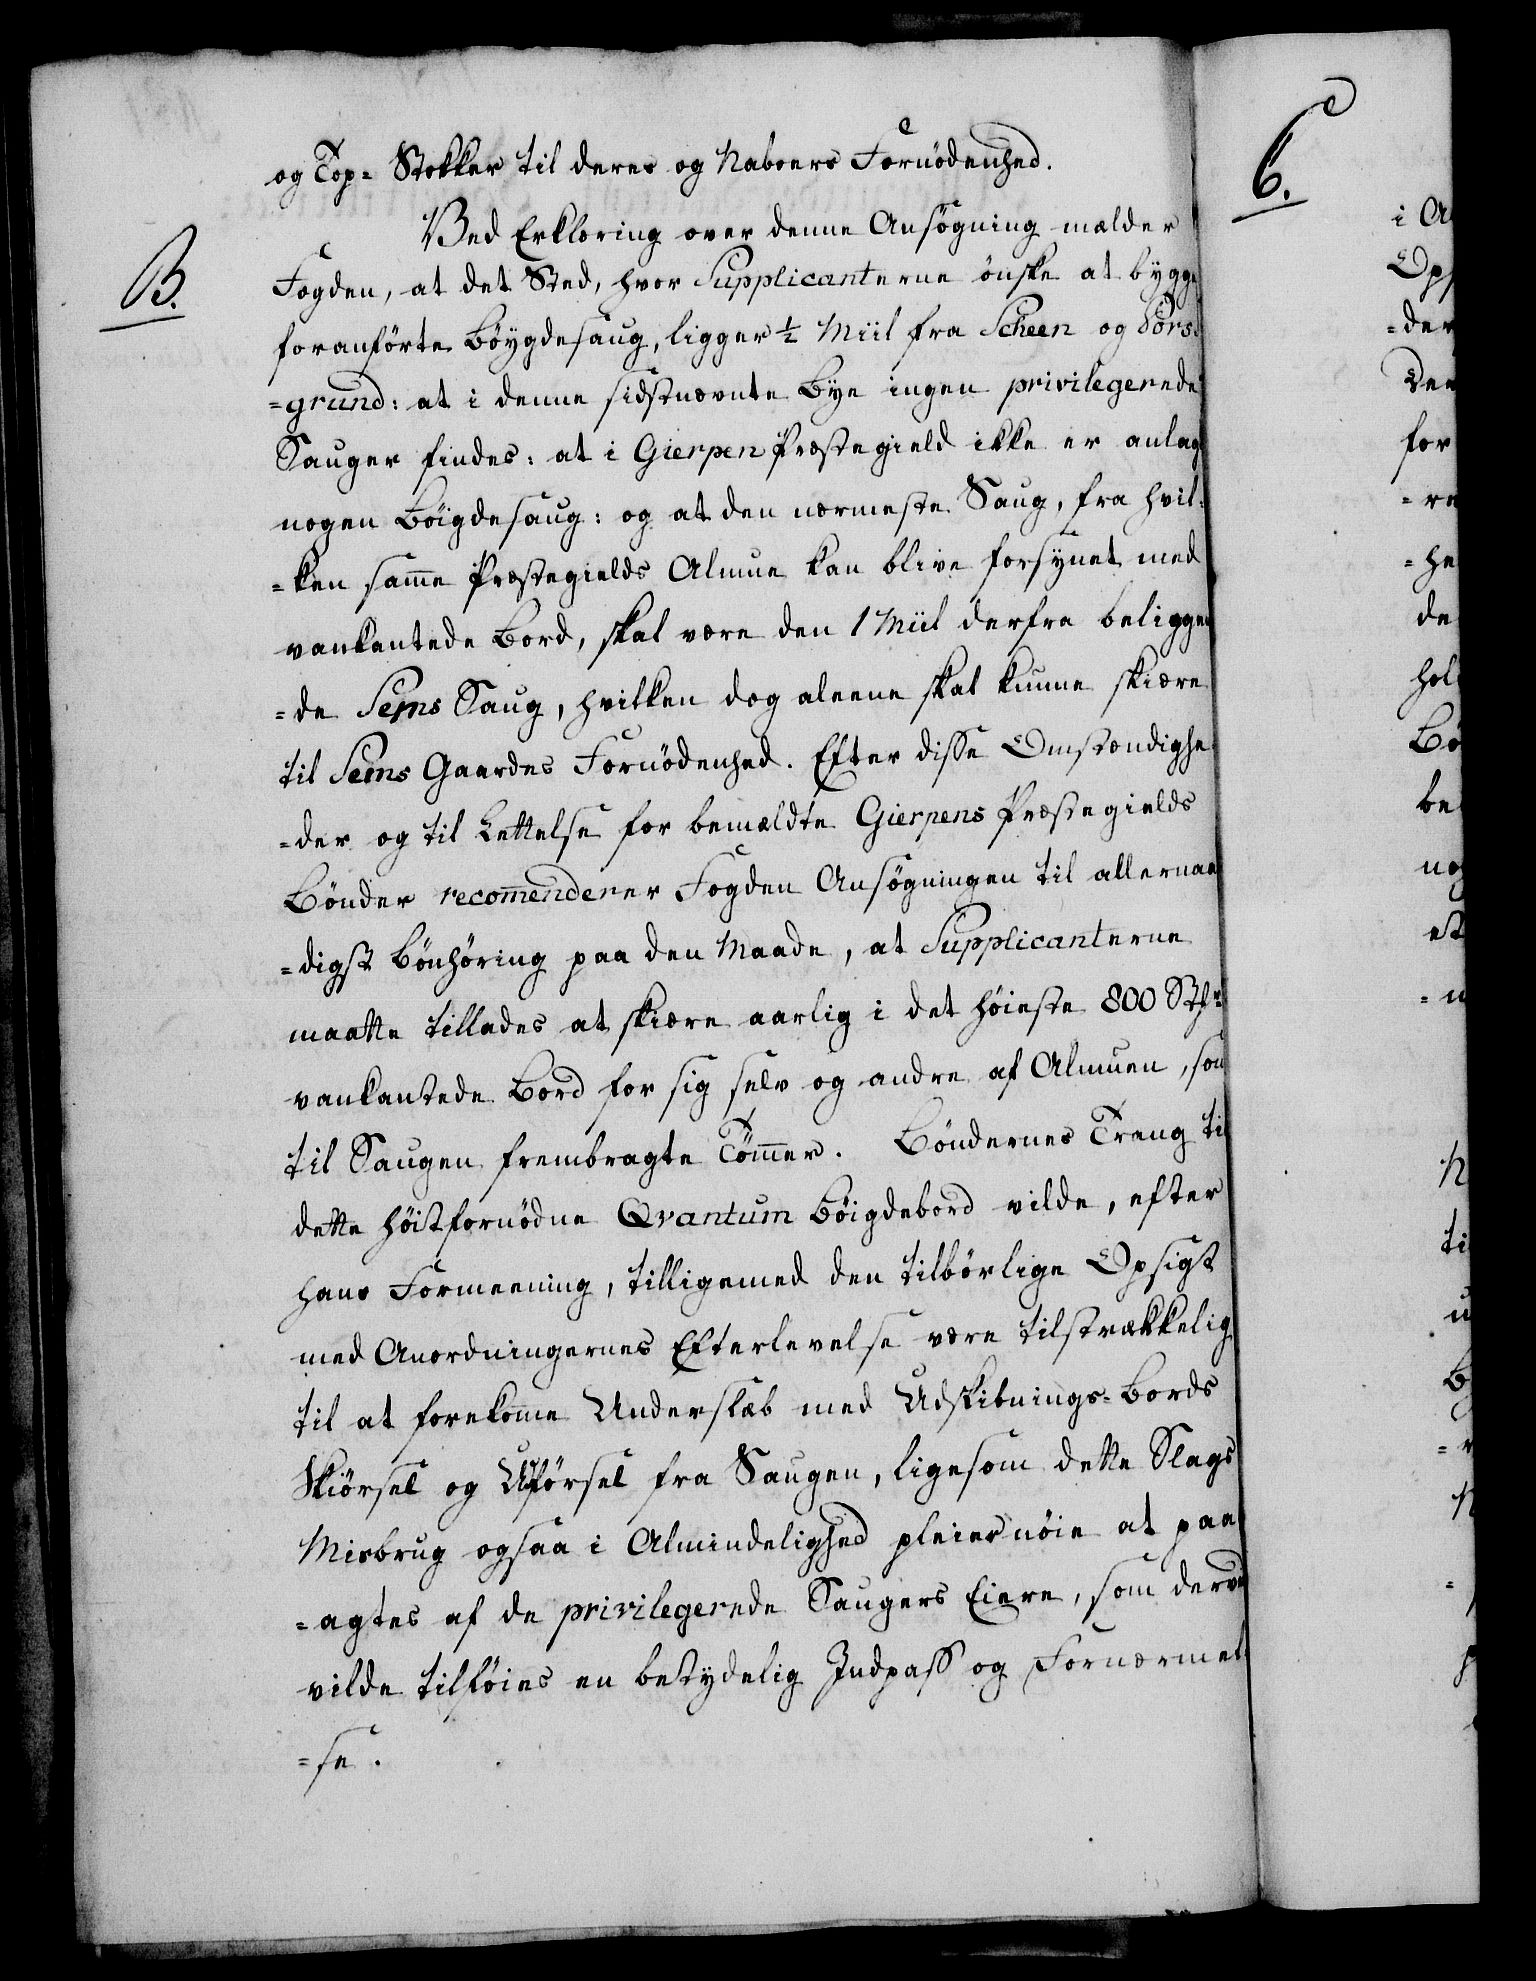 og Top- Stokker til deres og Naboers Fornödenhed.
B.
Ved Erklæring over denne Ansögning melder
Fogden, at det Sted, hvor Supplicanterne önske at bygge
foranförte Böygdesaug, ligger ½ Miil fra Scheen og Pors-
=grund: at i denne sidstnævnte Bye ingen privilegerede
Sauger findes: at i Gierpen Præstegield ikke er anlagt
nogen Böigdesaug: og at den nærmeste Saug, fra hvil-
=ken samme Præstegields Almue kan blive forsynet med
vankantede Bord, skal være den 1 Miil derfra beliggen
=de Sems Saug, hvilken dog aleene skal kunne skiære
til Sems Gaardes Fornödenhed. Efter disse Omstændighe
=der og til Lettelse for bemældte Gierpens Præstegields
Bönder recommenderer Fogden Ansögningen til allernaa
=digst Bönhöring paa den Maade, at Supplicanterne
maatte tillades at skiære aarlig i det höieste 800 St
vankantede Bord for sig selv og andre af Almuen, som
til Saugen frembragte Tömmer. Böndernes Trang til
dette höistfornödne Qvantum Böigdebord vilde, efter
hans Formeening, tilligemed den tilbörlige Opsigt
med Anordningernes Efterlevelse være tilstrækkelig
til at forekomme Underslæb med Udskibnings-Bords
Skiörsel og Udförsel fra Saugen, ligesom dette Slags
Misbrug ogsaa i Almindelighed pleier nöie at paa
=agtes af de privilegerede Saugers Eiere, som derved
vilde tilföies en betydelig Indpass og Fornærmel
=se.
C.
i A
Op
=der
Den
for
=re
=he
de
hol
Bö
be
nog
et
N
ti